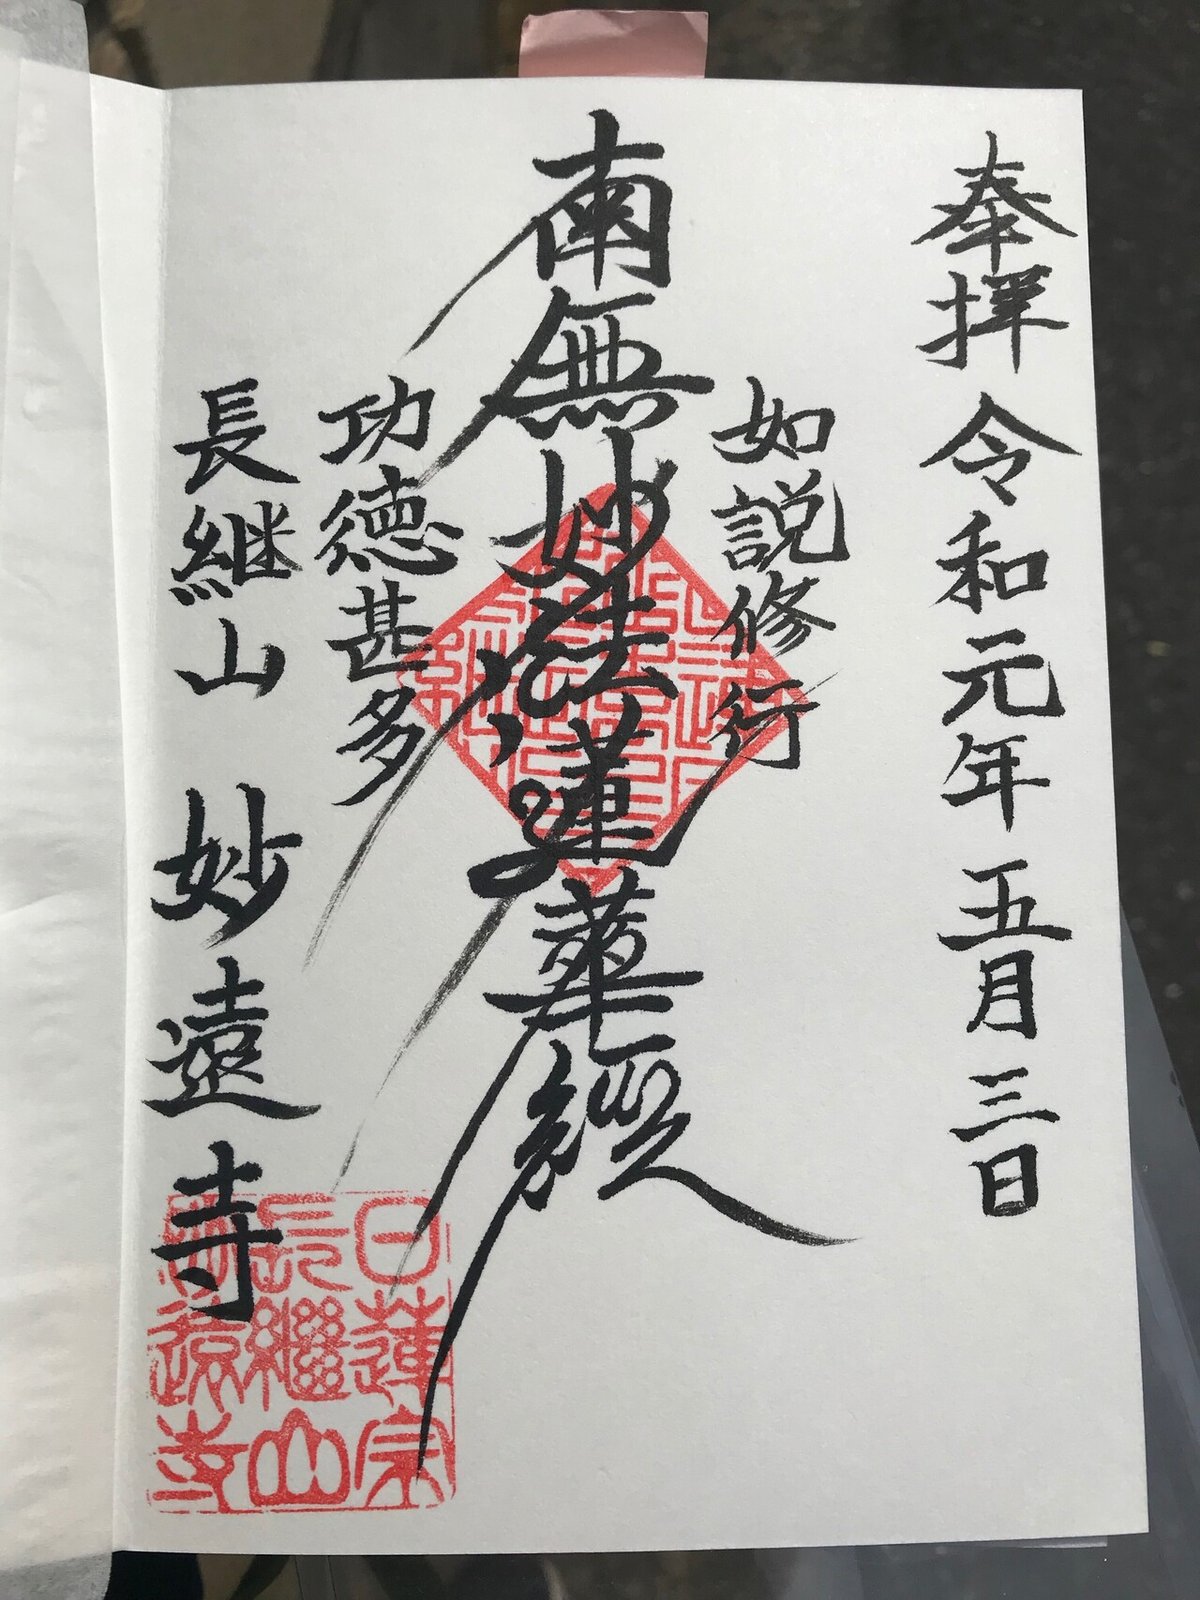 奉拝 令和元年 五月 三日
如説修行
南無妙法蓮華經
功德甚多
長継山 妙遠寺
日蓮宗
長繼山
妙遠寺